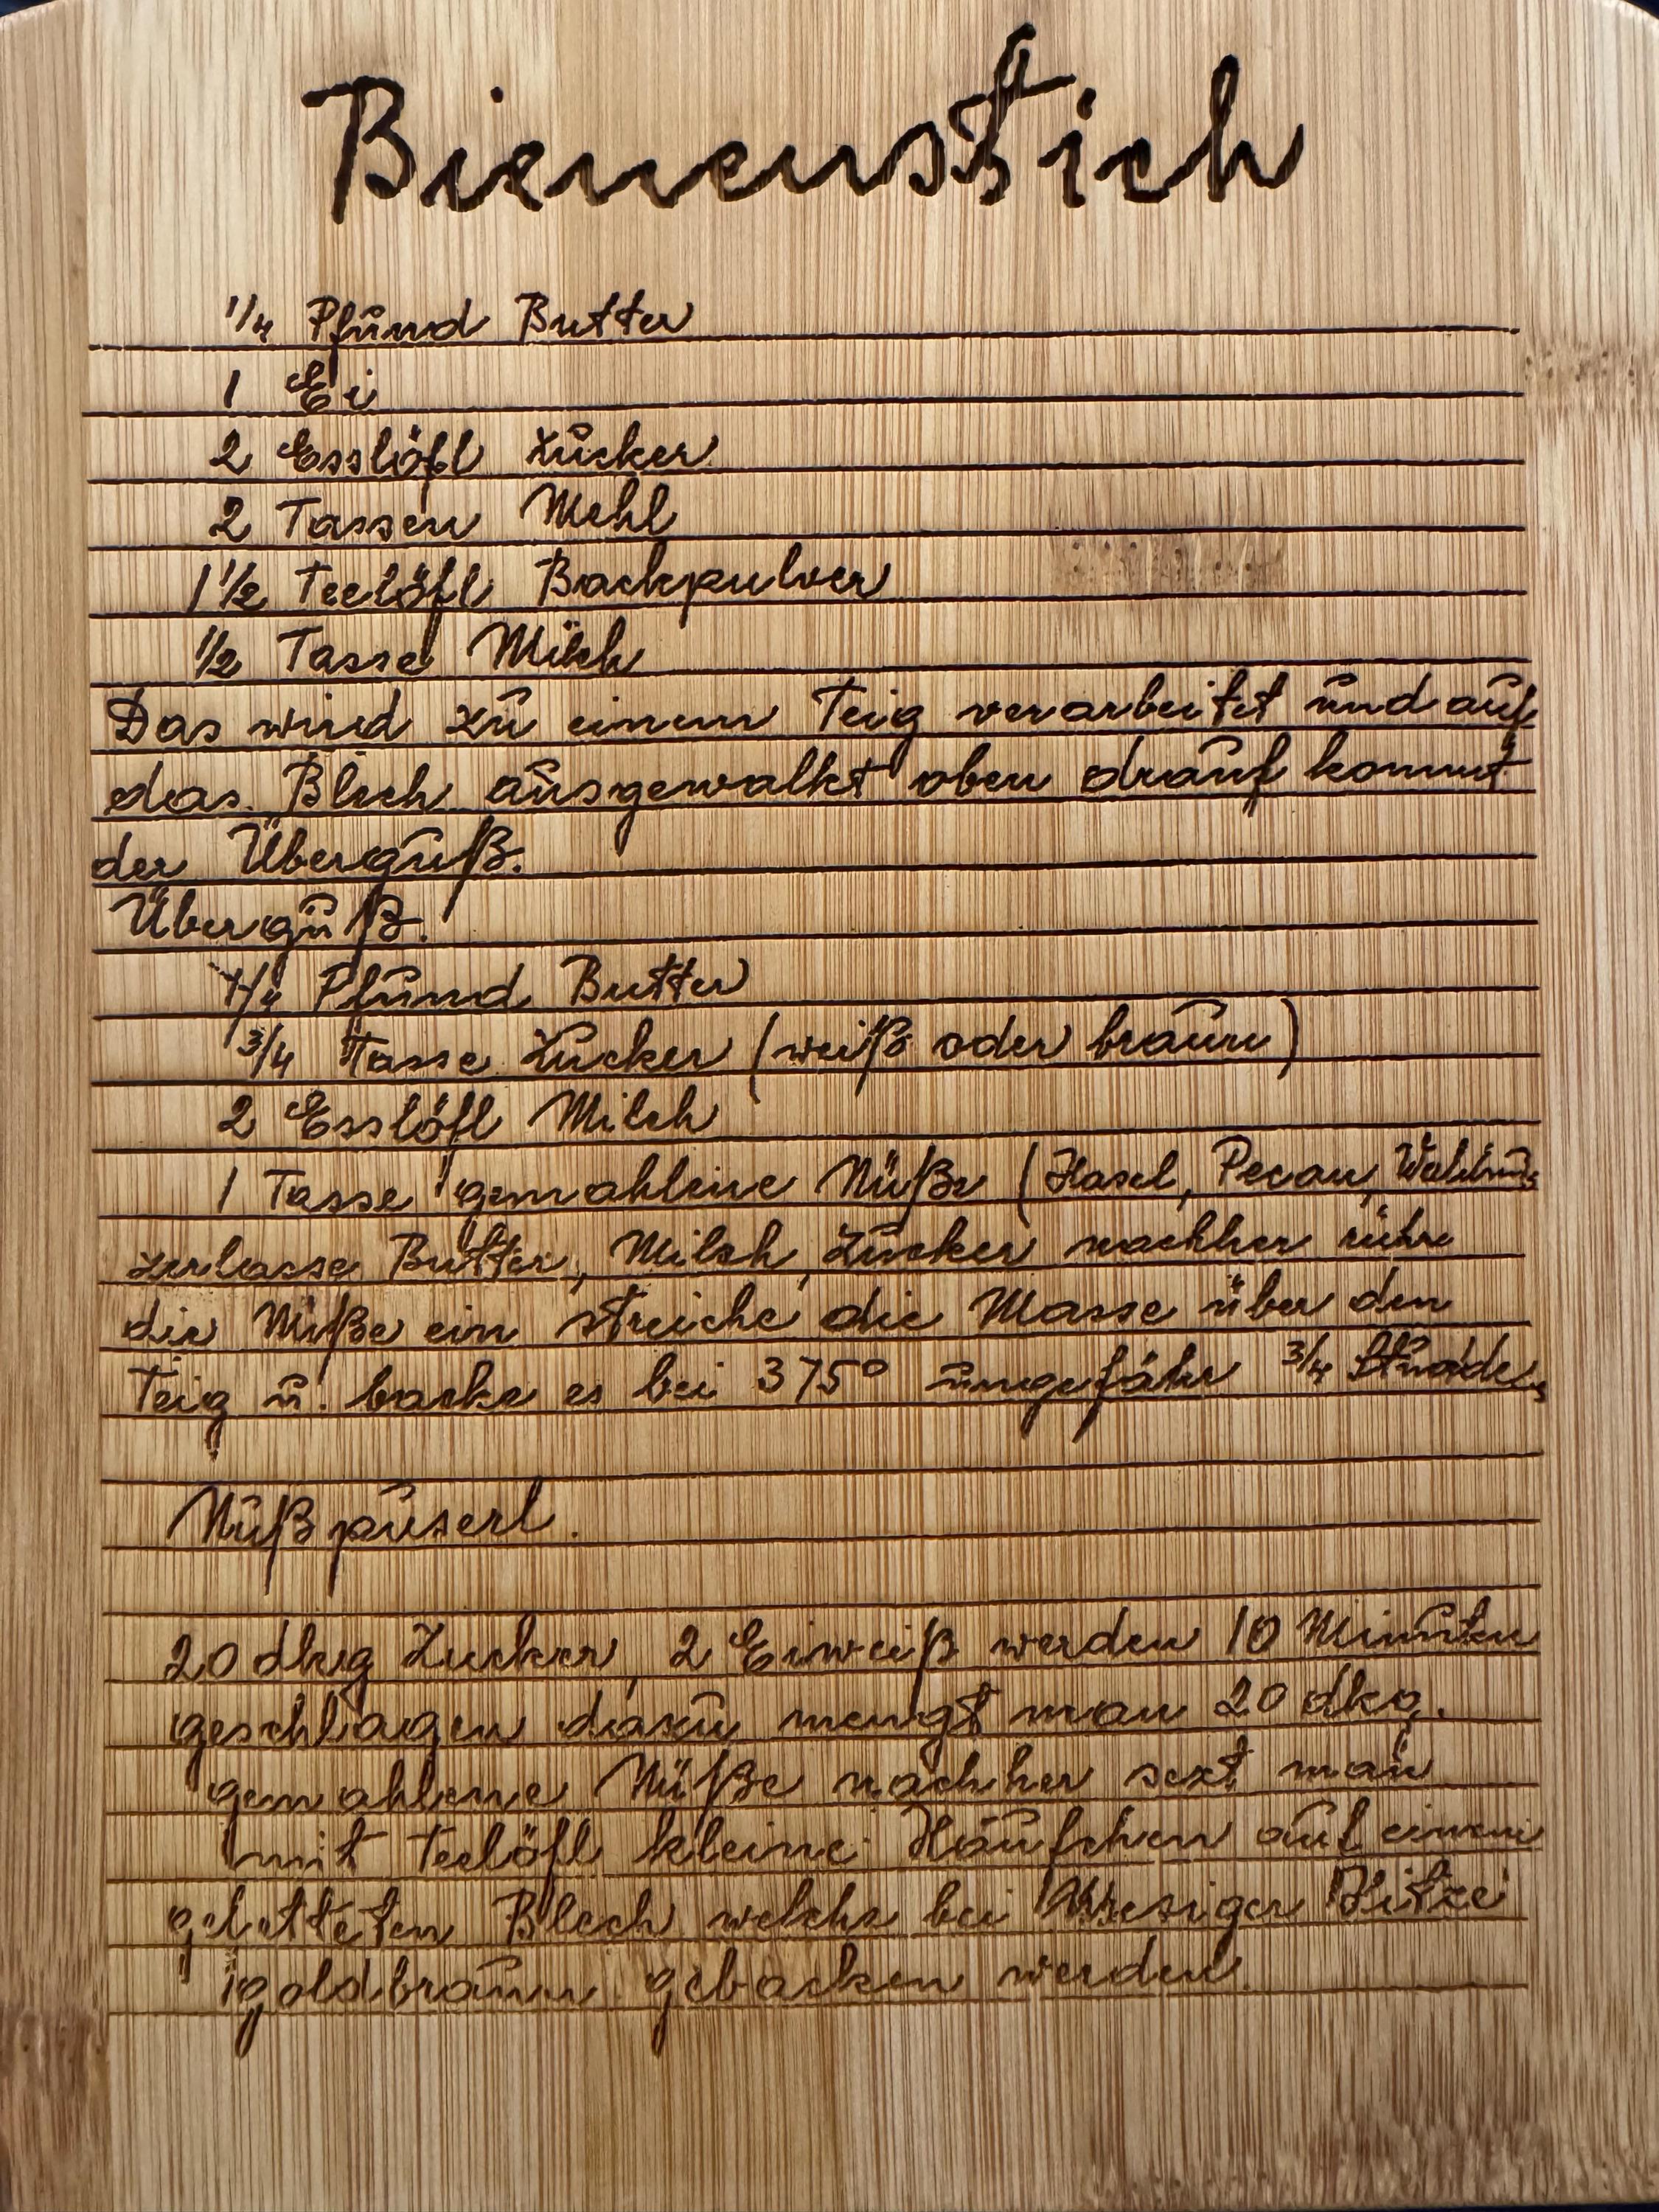 Bienenstich
1/4 Pfund Butter
1 Ei
2 Esslöfl Zucker
2 Tassen Mehl
1 1/2 Teelöfl Backpulver
1/2 Tasse Milch
Das wird zu einem Teig verarbeitet und auf
das Blech ausgewalkt oben drauf kommt
der Überguß.
Überguß.
1/4 Pfund Butter
3/4 Tasse Zucker (weiß oder braun)
2 Esslöfl Milch
1 Tasse gemahlene Nüße (Hasel, Pecan, Walnuß
zerlasse Butter, Milch, Zucker nachher rühre
die Nüße ein streiche die Masse über den
Teig u. backe es bei 375° ungefähr 3/4 Stunde
Nußpuserl.
20 dkg Zucker, 2 Eiweiß werden 10 Minuten
geschlagen dazu mengt man 20 dkg.
gemahlene Nüße nachher sezt man
mit Teelöfl kleine Häufchen auf einem
gefetteten Blech welche bei Hitze
goldbraun gebacken werden.